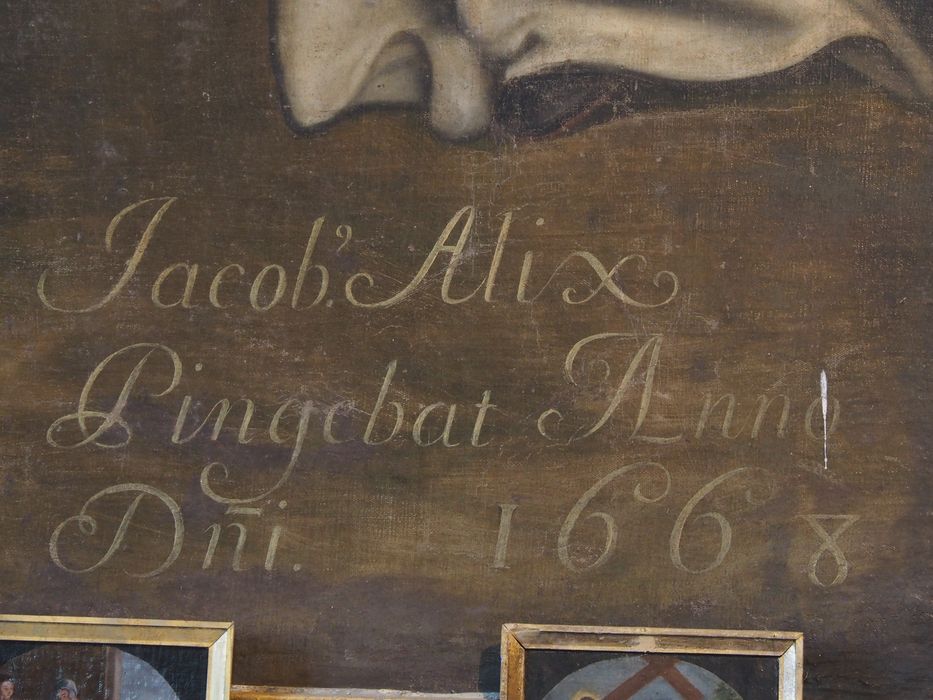 Jacob⁹. Alix
Pingebat Anno
Dn̄i. 1668